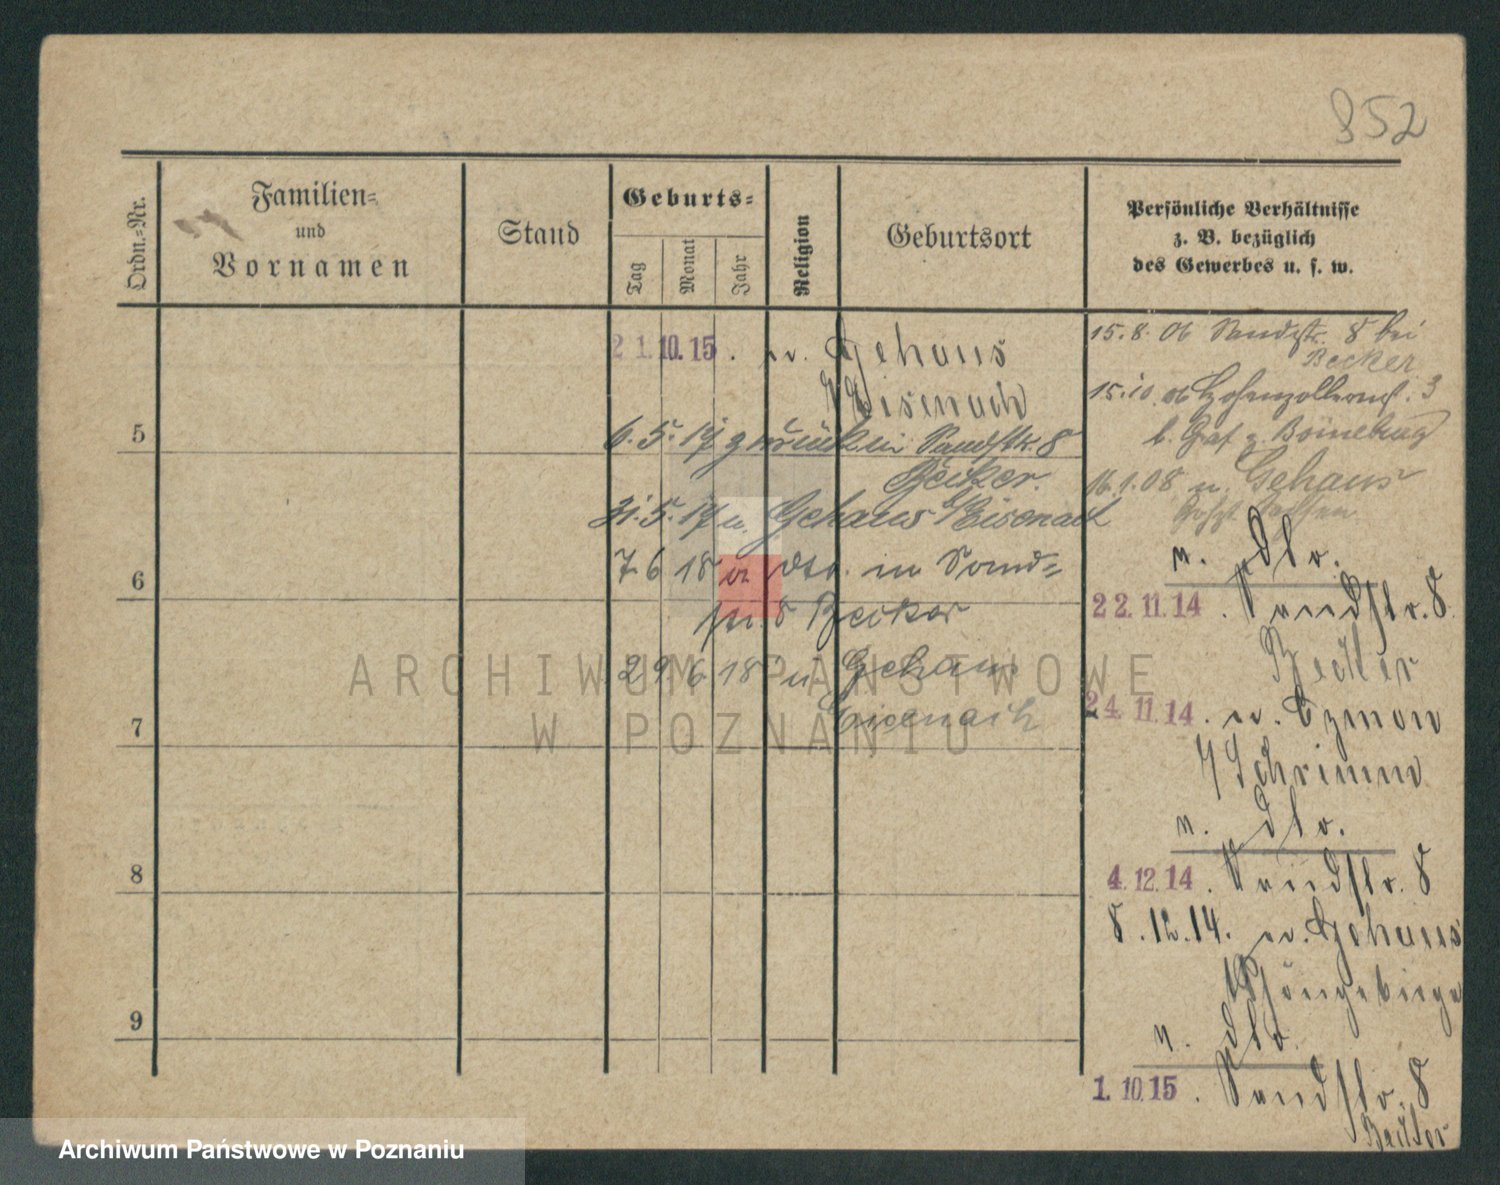 852
Ordn.-Nr.
Familien-
und
Vornamen
Stand
Geburts-
Tag
Monat
Jahr
Religion
Geburtsort
Persönliche Verhältnisse
z. B. bezüglich
des Gewerbes u. s. w.
5
6
7
8
9
21.10.15. n. Gehaus
Eisenach
6.5.17 zurück in Sandstr. 8
Becker.
31.5.17 n. Gehaus b/Eisenach
7 6 18 in Sand-
str. 8 Becker
29 6 18 n Gehaus
Eisenach
15.8.06 Sandstr. 8 bei
Becker
15.10.06 Hohenzollernst. 3
b. Graf v. Boineburg
16.1.08 n. Gehaus
n. dto.
22.11.14. Sandstr. 8.
Becker
24.11.14. n. Czmon
/Schrimm
n. dto.
4.12.14. Sandstr. 8
8.12.14. n. Gehaus
Rhöngebirge
n. dto.
1.10.15. Sandstr. 8
Becker
ARCHIWUM PAŃSTWOWE
W POZNANIU
Archiwum Państwowe w Poznaniu